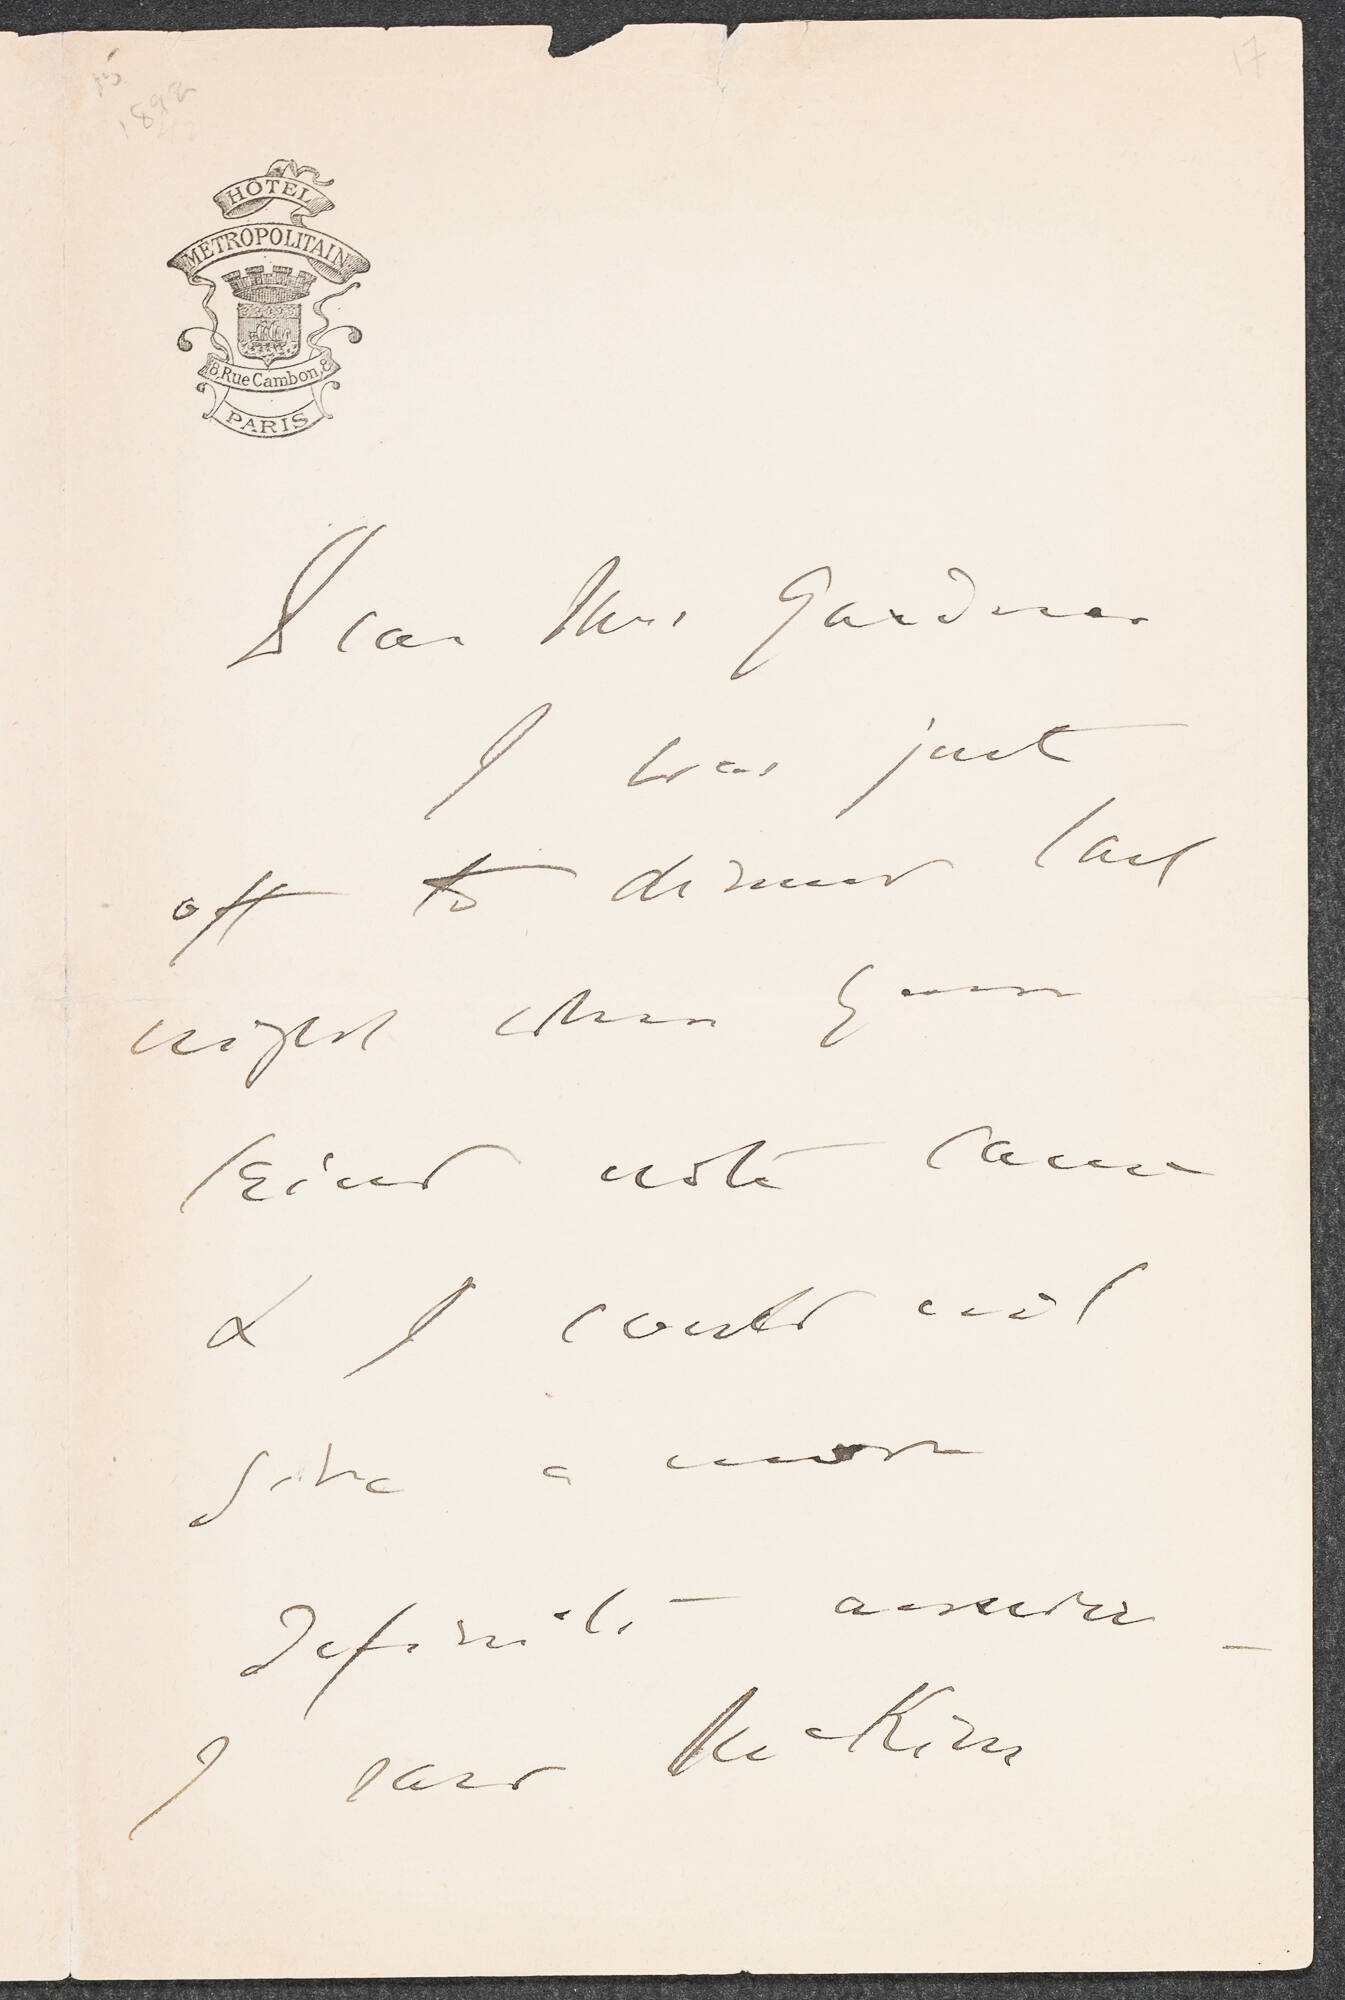 17
1892
HÔTEL
METROPOLITAIN
8, Rue Cambon, 8
PARIS
Dear Mrs Gardner
I was just
off to dinner last
night when your
kind note came
& I could not
give a more
definite answer –
I saw McKim